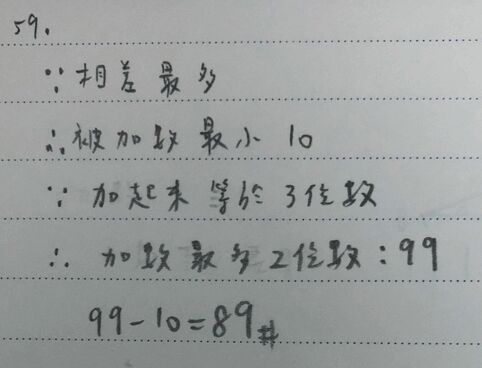 59.
∵相差最多
∴被加数最小 10
∵ 加起來 等於 3位数
∴ 加数最多2位数:99
99-10=89#